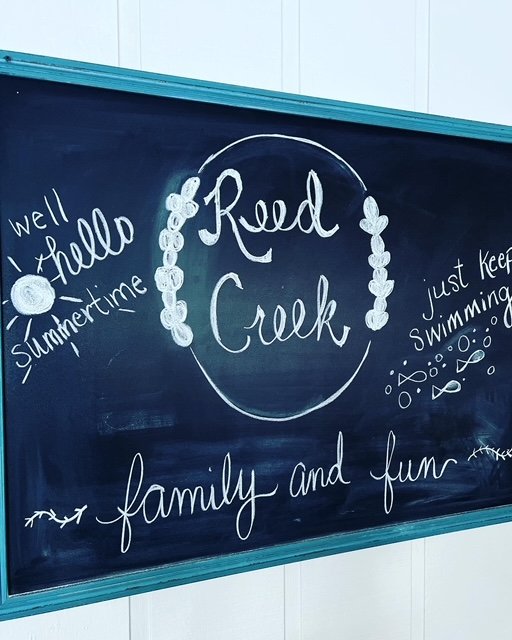 well
hello
summertime
Reed
Creek
just keep
swimming
family and fun